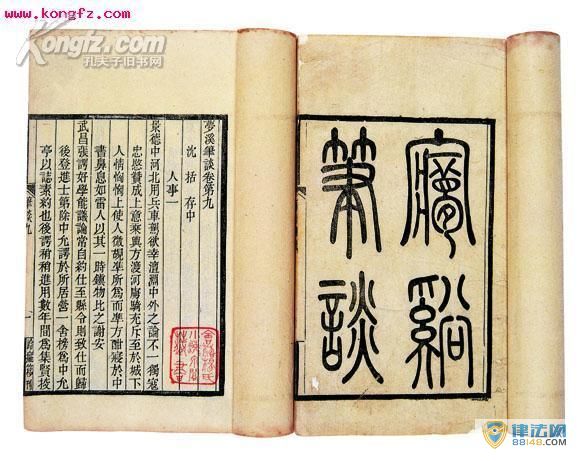 www.kongfz.com
Kongfz.com
孔夫子旧书网
㝱谿
筆談
夢溪筆談卷第九
沈括存中
人事一
景德中河北用兵車駕欲幸澶淵中外之論不一獨寇
忠愍贊成上意乘輿方渡河虜騎充斥至於城下
人情恟恟上使人微覘準所為而準方酣寢於中
書鼻息如雷人以其一時鎮物比之謝安
武昌張諤好學能議論常自約仕至縣令則致仕而歸
後登進士第除中允諤於所居營一舍榜為中允
亭以誌素約也後諤稍稍進用數年間為集賢校
筆談九
律法网
88148.COM